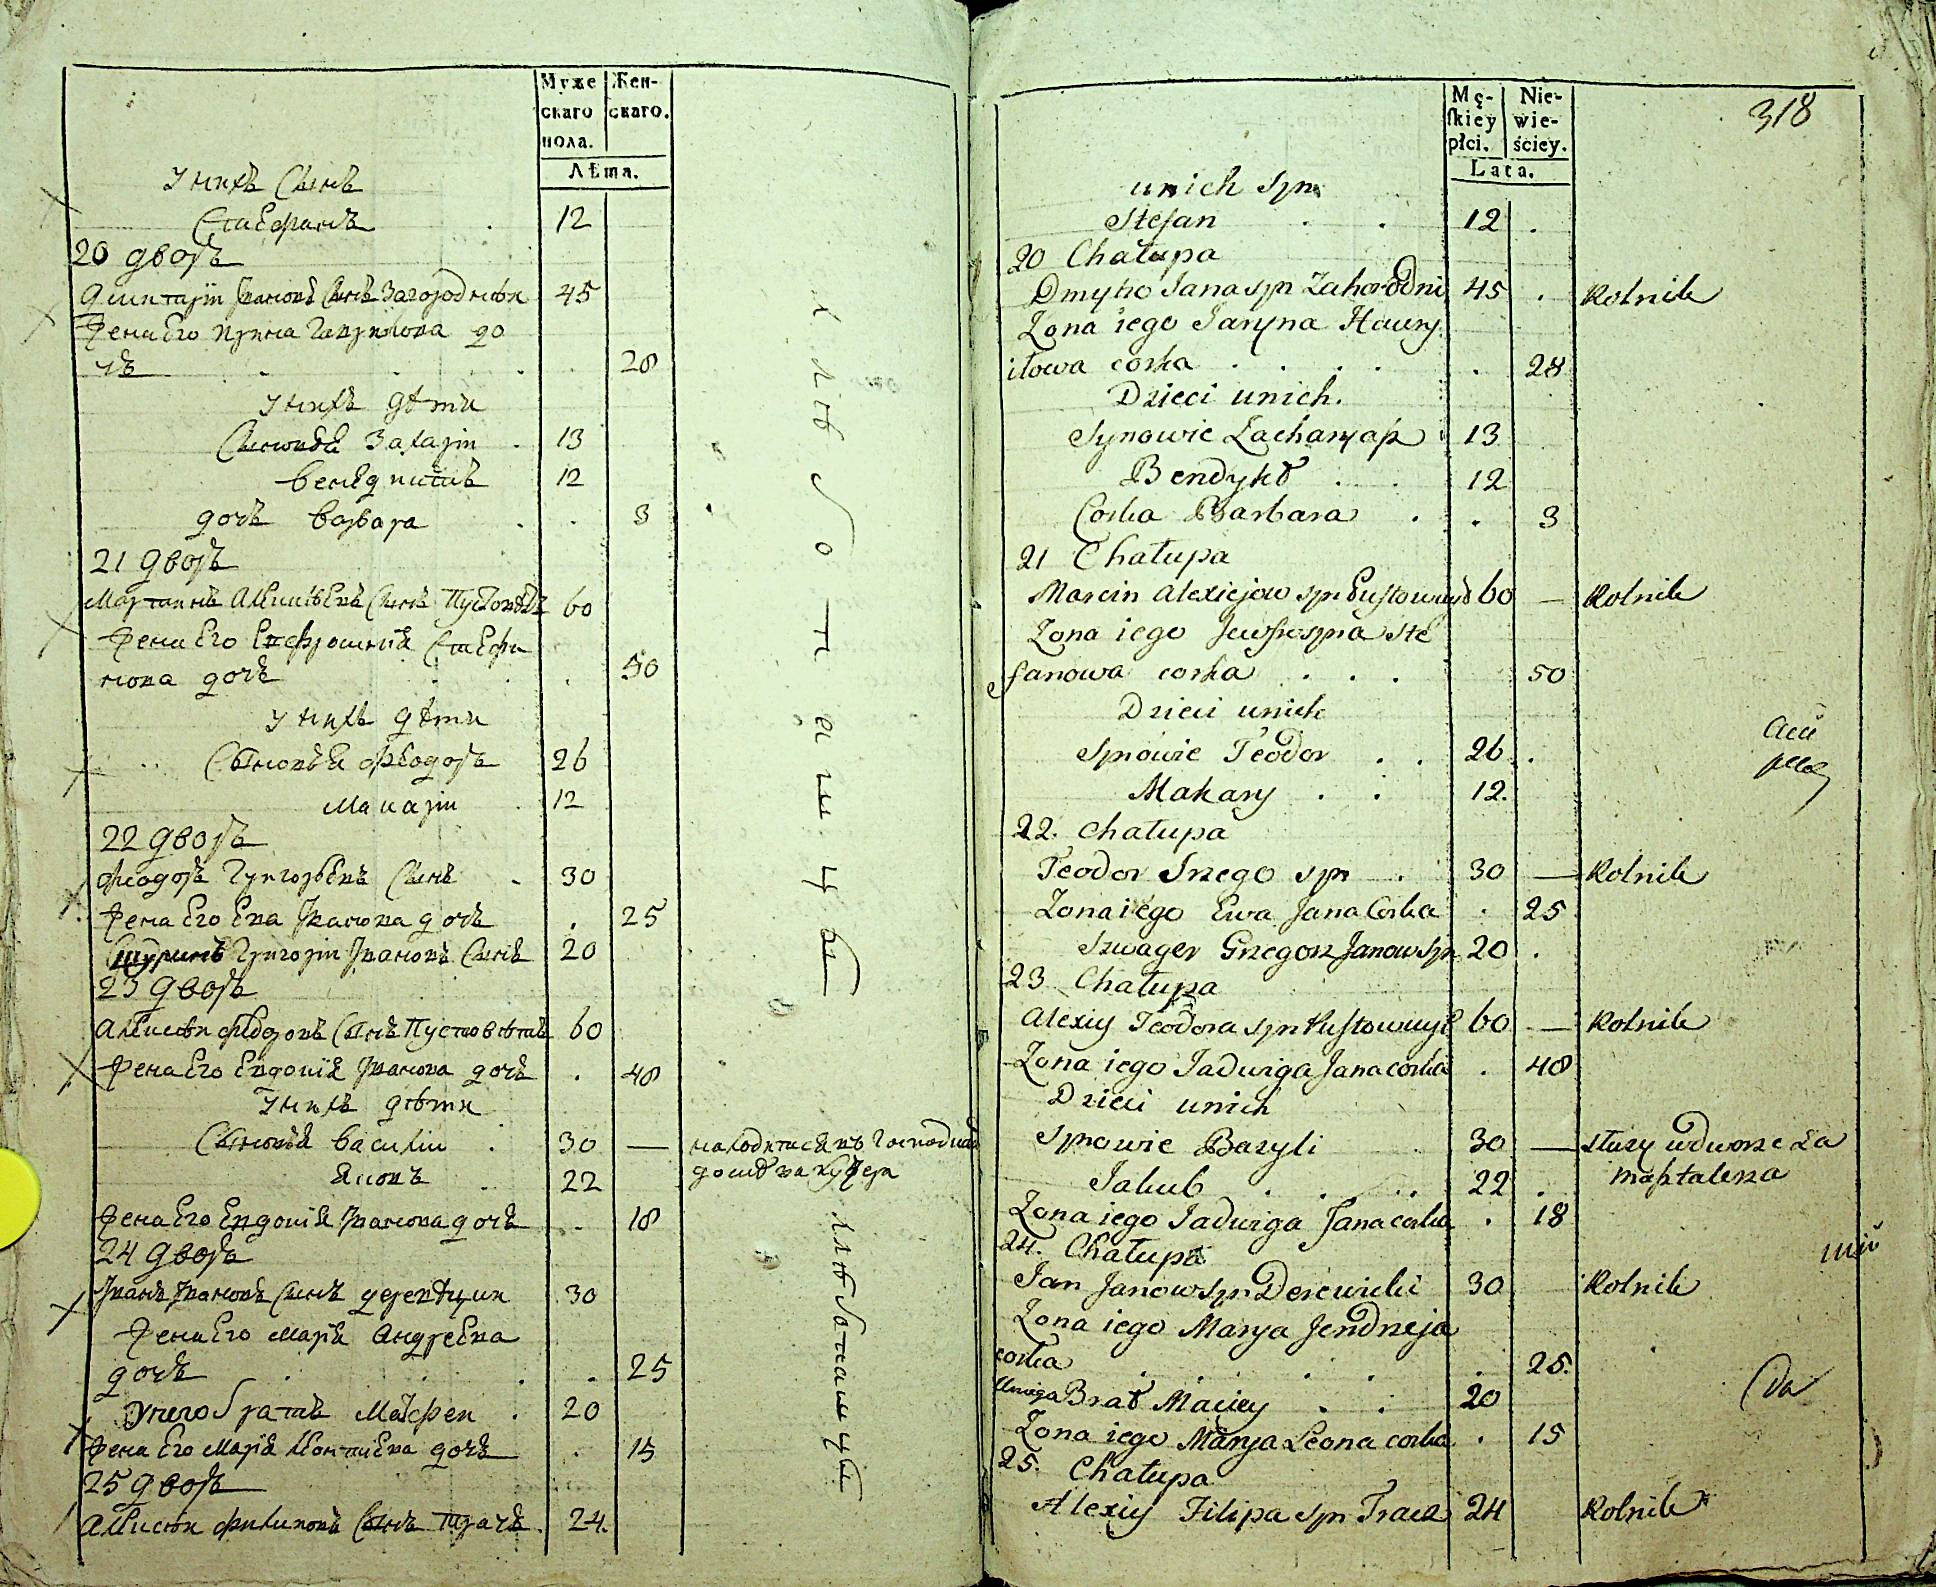 Муже
скаго
пола.
Жен-
скаго.
Лѣта.
У нихъ Сынъ
Стефанъ 12
20 дворъ
Дмитрій Ивановъ Сынъ Загороднѣи 45
Жена Его Ирина Гаврилова до
чь 28
У нихъ дѣти
Сыновья Захарій 13
Бенедиктъ 12
дочь Варвара 3
21 дворъ
Мартинъ Алексѣевъ Сынъ Пустовѣтъ 60
Жена Его Евфросинія Стефа
нова дочь 50
У нихъ дѣти
Сыновья Феодоръ 26
Макарій 12
22 дворъ
Феодоръ Григорьевъ Сынъ 30
Жена Его Ева Иванова дочь 25
Шуринъ Григорій Ивановъ Сынъ 20
23 дворъ
Алексѣи Федоровъ Сынъ Пустовѣтъ 60
Жена Его Евдокія Иванова дочь 48
У нихъ дѣти
Сыновья Василій 30 — находится въ Господскомъ
домѣ за кучера
Яковъ 22
Жена Его Евдокія Иванова дочь 18
24 дворъ
Иванъ Ивановъ Сынъ Деревѣцки 30
Жена Его Марія Андреева
дочь 25
У него братъ Матфеи 20
Жена Его Марія Леонтиева дочь 15
25 дворъ
Алексѣи Филиповъ Сынъ Ткачъ 24.
хлѣбопашцы
хлѣбопашцы
318
Mę-
ſkiey
płci.
Nie-
wie-
ściey.
Lata.
unich syn
Stefan 12
20 Chałupa
Dmytro Jana syn Zahorodni 45 Rolnik
Zona iego Jaryna Hawry
iłowa corka 28
Dzieci unich.
Synowie Zacharyasz 13
Bendykt 12
Corka Barbara 3
21 Chałupa
Marcin Alexiejow syn Pustowuyt 60 — Rolnik
Zona iego Jewfrozyna Ste
fanowa corka 50
Dzieci unich
Synowie Teodor 26
Makary 12.
22. Chałupa
Teodor Hrzego syn 30 — Rolnik
Zona iego Ewa Jana Corka 25
Szwager Grzegorz Janow syn 20
23 Chałupa
Alexiy Teodora syn Pustowuyt 60 — Rolnik
Zona iego Jadwiga Jana corka 48
Dzieci unich
Synowie Bazyli 30 — służy w dworze za
masztalerza
Jakub 22
Zona iego Jadwiga Jana corka 18
24. Chałupa
Jan Janow syn Derewicki 30 Rolnik
Zona iego Marya Jendrzeja
corka 25.
Uniego Brat Maciey 20
Zona iego Marya Leona corka 15
25. Chałupa
Alexiy Filipa syn Tracz 24 Rolnik